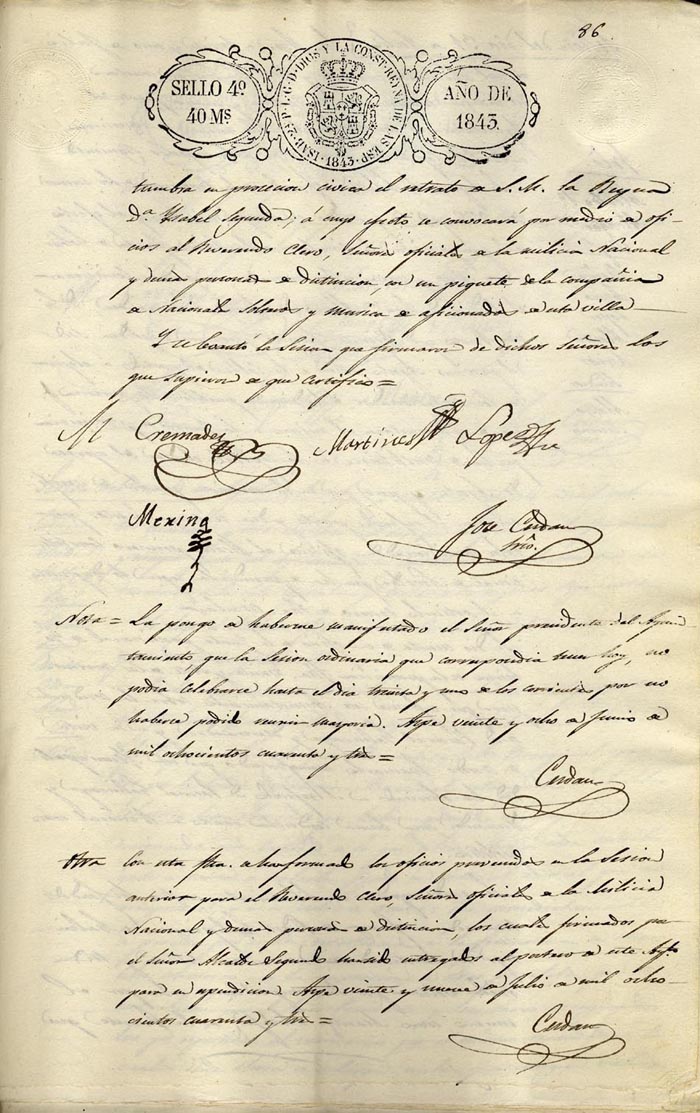 86
SELLO 4º
40 Ms
ISAB. 2ª P. L. G. D. DIOS Y LA CONST. REYNA DE LAS ESP.
1843
AÑO DE
1843.
en procesion civica el retrato de S. M. la Reyna
Dª Ysabel Segunda; á cuyo efecto se convocará por medio de ofi
cios al Reverendo Clero, Señores oficiales de la milicia Nacional
y demas personas de distincion, con un piquete de la compañia
de Nacionales y musica de aficionados de esta villa
Y se levantó la Sesion que firmaron de dichos Señores los
que supieron de que certifico=
M Cremades
Martines
Lopez
Jose Cerdan
Srio.
Nota = La pongo de haberme manifestado el Señor presidente del Ayun
tamiento, que la Sesion ordinaria que correspondia tener hoy, no
podia celebrarce hasta el dia treinta y uno de los corrientes por no
haberce podido reunir mayoria. Aspe veinte y ocho de
mil ochocientos cuarenta y tres=
Cerdan
Otra Con esta fha. se han formado los oficios prevenidos en la Sesion
anterior para el Reverendo Clero, Señores oficiales de la Milicia
Nacional y demas personas de distincion, los cuales firmados por
el Señor Alcalde Segundo han sido entregados al portero de este Ayto.
para su espendicion Aspe veinte y nueve de Julio de mil ocho
cientos cuarenta y tres=
Cerdan